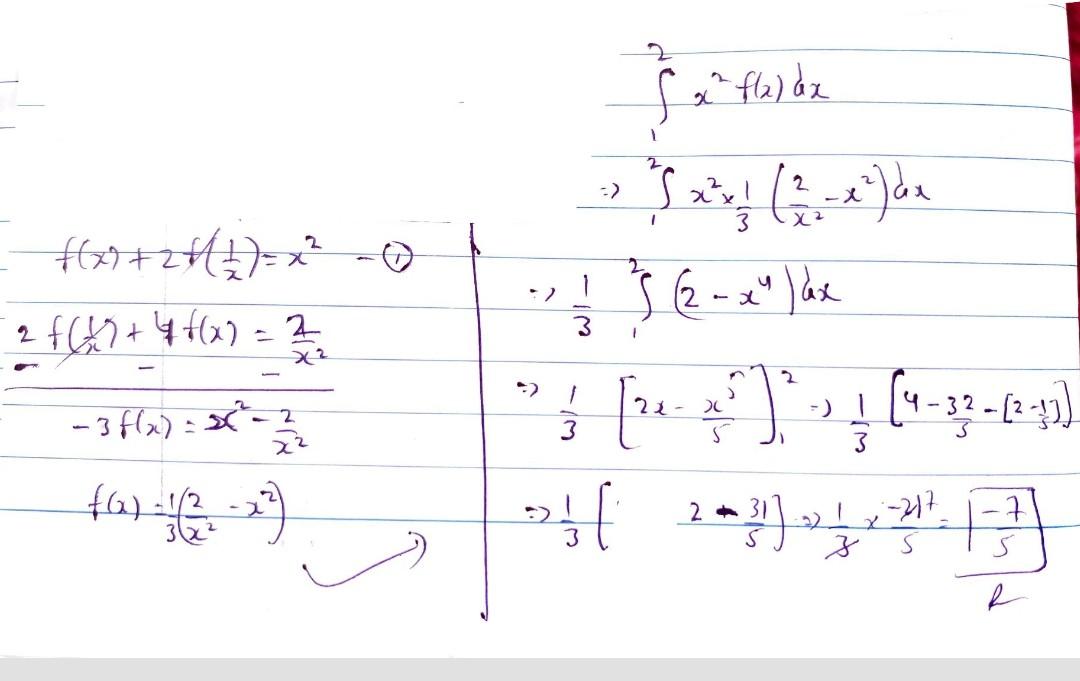 f(x) + 2f(1/x) = x² - ①
2 f(1/x) + 4f(x) = 2/x²
- - -
-3 f(x) = x² - 2/x²
f(x) = 1/3 (2/x² - x²)
∫₁² x² f(x) dx
=> ∫₁² x² × 1/3 (2/x² - x²) dx
=> 1/3 ∫₁² (2 - x⁴) dx
=> 1/3 [2x - x⁵/5]₁² => 1/3 [4 - 32/5 - [2 - 1/5]]
=> 1/3 [ 2 - 31/5] => 1/3 × -21 7/5 = -7/5